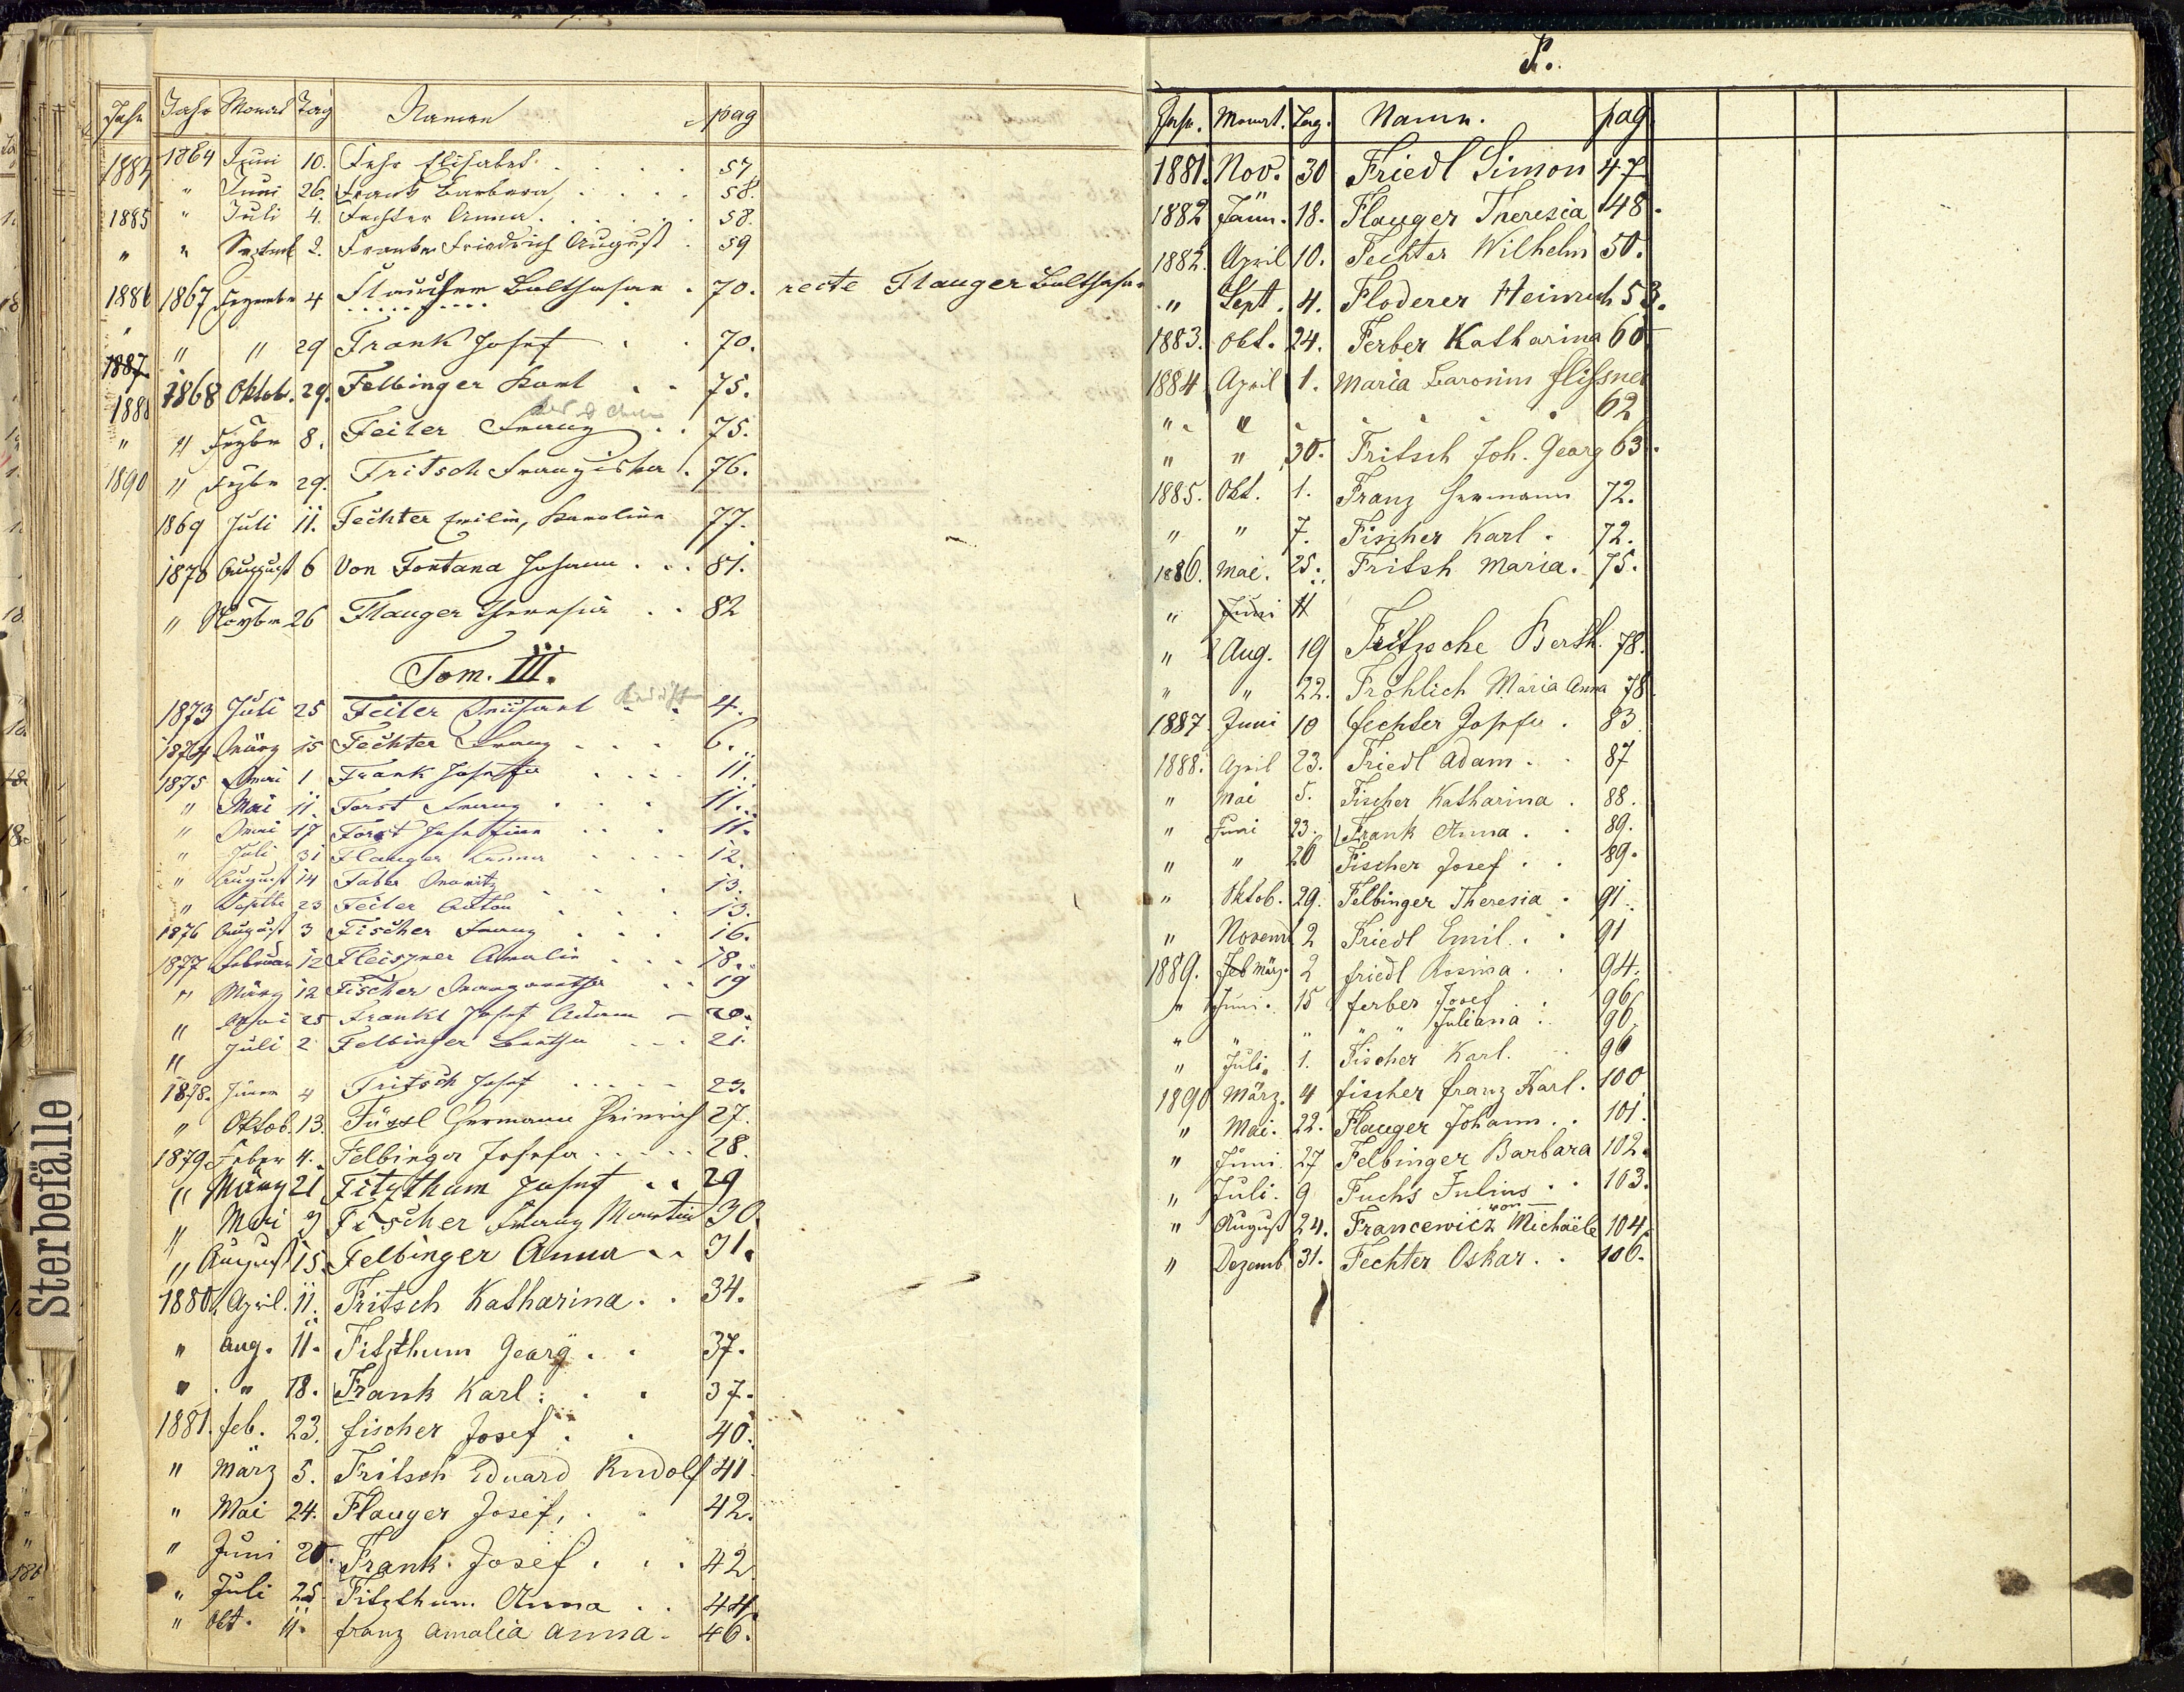 Jahr Monat Tag Namen pag
1864 Juni 10. Fehr Elisabet 57
" Juni 26. Frank Barbara 58.
" Juli 4. Fechter Anna 58.
" Septemb 2. Franke Friedrich August 59
1867 Dezember 4 Balthasar 70. recte Flauger Balthasar
" " 29 Frank Josef 70.
1868 Oktob. 29. Felbinger Karl 75.
" Dezbr 8. Feiler Franz 75.
" Dezbr 29. Fritsch Franziska 76.
1869 Juli 11. Fechter Emilie, Karoline 77.
1870 August 6 Von Fontana Johann 81.
" Novbr 26 Flauger Theresia 82
Tom. III.
1873 Juli 25 Feiler 4.
1874 März 15 Fechter Franz 6.
1875 Mai 1 Frank Josefa 11.
" Mai 11. Forst Franz 11.
" Mai 17 Forst Josefine 11.
" Juli 31 Flauger Anna 12.
" August 14 Faber Moritz 13.
" Septbr 23 Feiler Anton 13.
1876 August 3 Fischer Franz 16.
1877 Februar 12 Fleiszner Amalie 18.
" März 12 Fischer Margaretha 19
" Mai 25 Frankl Josef Adam 20.
" Juli 2 Felbinger Bertha 21.
1878. Jänner 4 Fritsch Josef 23.
" Oktob. 13. Füssl Hermann Heinrich 27.
1879 Feber 4. Felbinger Josefa 28.
" März 21 Fitzthum Josef 29
" Mai 9 Fischer Franz Martin 30.
" August 15. Felbinger Anna 31.
1880. April. 11. Fritsch Katharina 34.
" Aug. 11. Fitzthum Georg 37.
" " 18. Frank Karl 37.
1881. feb. 23. fischer Josef 40.
" März 5. Fritsch Eduard Rudolf 41
" Mai 24. Flauger Josef, 42.
" Juni 20. Frank Josef 42
" Juli 25. Fitzthum Anna 44.
" Okt. 11. franz Amalia Anna 46.
Jahr
1884
1885
"
1886
"
1887
1888
"
1890
Sterbefälle
F.
Jahr. Monat. Tag. Namen. pag.
1881. Nov. 30 Friedl Simon 47
1882 Jänn. 18. Flauger Theresia 48.
1882. April 10. Fechter Wilhelm 50.
" Sept. 4. Floderer Heinrich 53.
1883. Okt. 24. Ferber Katharina 60
1884 April 1. Maria Baronin flißner
" " 62
" " 30. Fritsch Joh. Georg 63.
1885. Okt. 1. Franz Hermann 72.
" " 7. Fischer Karl 72.
1886. Mai. 25. Fritsh Maria. 75.
" Juni 11
" Aug. 19 Fritzsche Berth. 78.
" " 22. Fröhlich Maria Anna 78.
1887 Juni 10 fechter Josefa 83
1888. April 23. Friedl Adam 87
" Mai 5. Fischer Katharina 88.
" Juni 23. Frank Anna 89.
" " 26 Fischer Josef 89.
" Oktob. 29. Felbinger Theresia 91.
" Novemb 2 Friedl Emil 91
1889. Feb März. 2 friedl Rosina 94.
" Juni. 15 ferber Josef 96
" " " " Juliana 96
" Juli. 1. Fischer Karl. 96
1890 März. 4 fischer franz Karl. 100
" Mai. 22. Flauger Johann 101.
" Juni 27 Felbinger Barbara 102.
" Juli. 9 Fuchs Julius 103.
von
" August 24. Francewicz Michaële 104.
" Dezemb 31. Fechter Oskar 106.